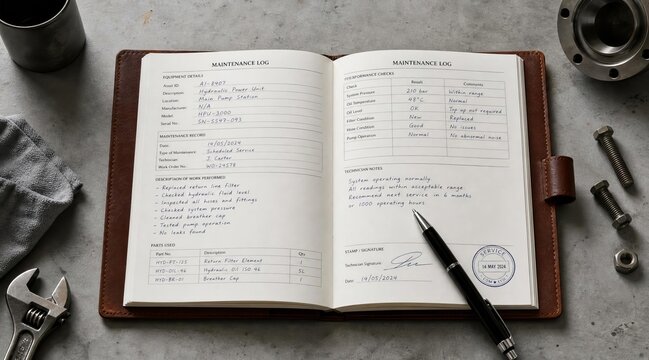 MAINTENANCE LOG
EQUIPMENT DETAILS
Asset ID: A1-8407
Description: Hydraulic Power Unit
Location: Main Pump Station
Manufacturer: N/A
Model: HPU-3000
Serial No.: SN-5547-093
MAINTENANCE RECORD
Date: 14/05/2024
Type of Maintenance: Scheduled Service
Technician: J. Carter
Work Order No.: WO-24578
DESCRIPTION OF WORK PERFORMED
- Replaced return line filter
- Checked hydraulic fluid level
- Inspected all hoses and fittings
- Checked system pressure
- Cleaned breather cap
- Tested pump operation
- No leaks found
PARTS USED
Part No. Description Qty
HYD-FT-125 Return Filter Element 1
HYD-OIL-46 Hydraulic Oil ISO 46 5L
HYD-BR-01 Breather Cap 1
MAINTENANCE LOG
PERFORMANCE CHECKS
Check Result Comments
System Pressure 210 bar Within range
Oil Temperature 48°C Normal
Oil Level OK Top up not required
Filter Condition New Replaced
Hose Condition Good No issues
Pump Operation Normal No abnormal noise
TECHNICIAN NOTES
System operating normally
All readings within acceptable range
Recommend next service in 6 months
or 1000 operating hours.
STAMP / SIGNATURE
Technician Signature
Date: 14/05/2024
SERVICE
14 MAY 2024